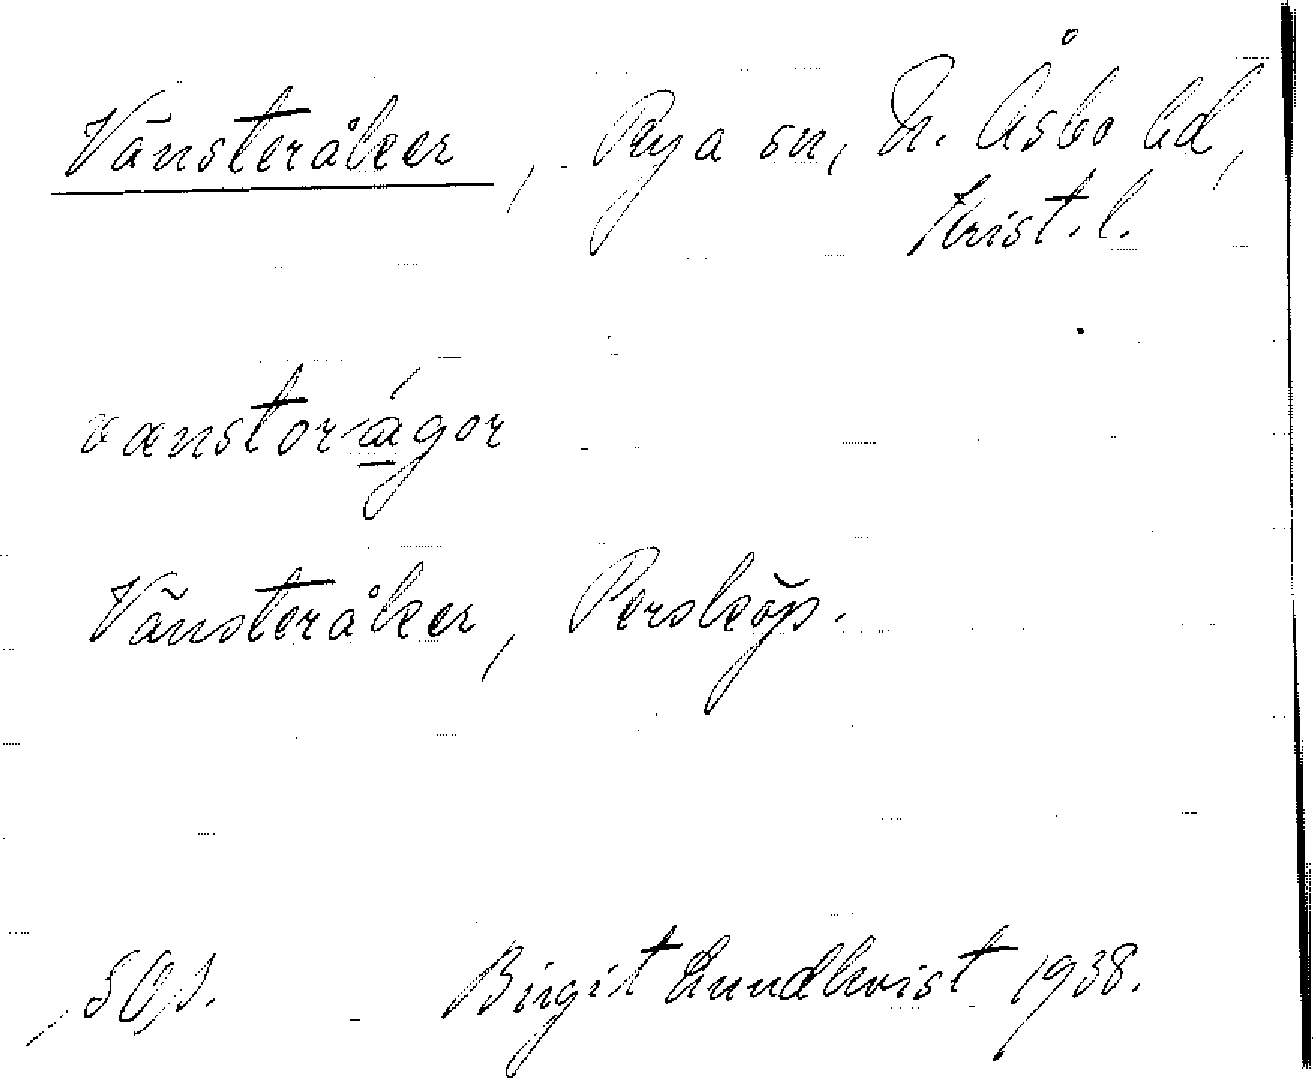 Vänsteråker, Rya sn, N. Åsbo hd,
Krist. l.
vænstorågor
Vänsteråker, Persköp.
Birgit Lundkvist 1938.